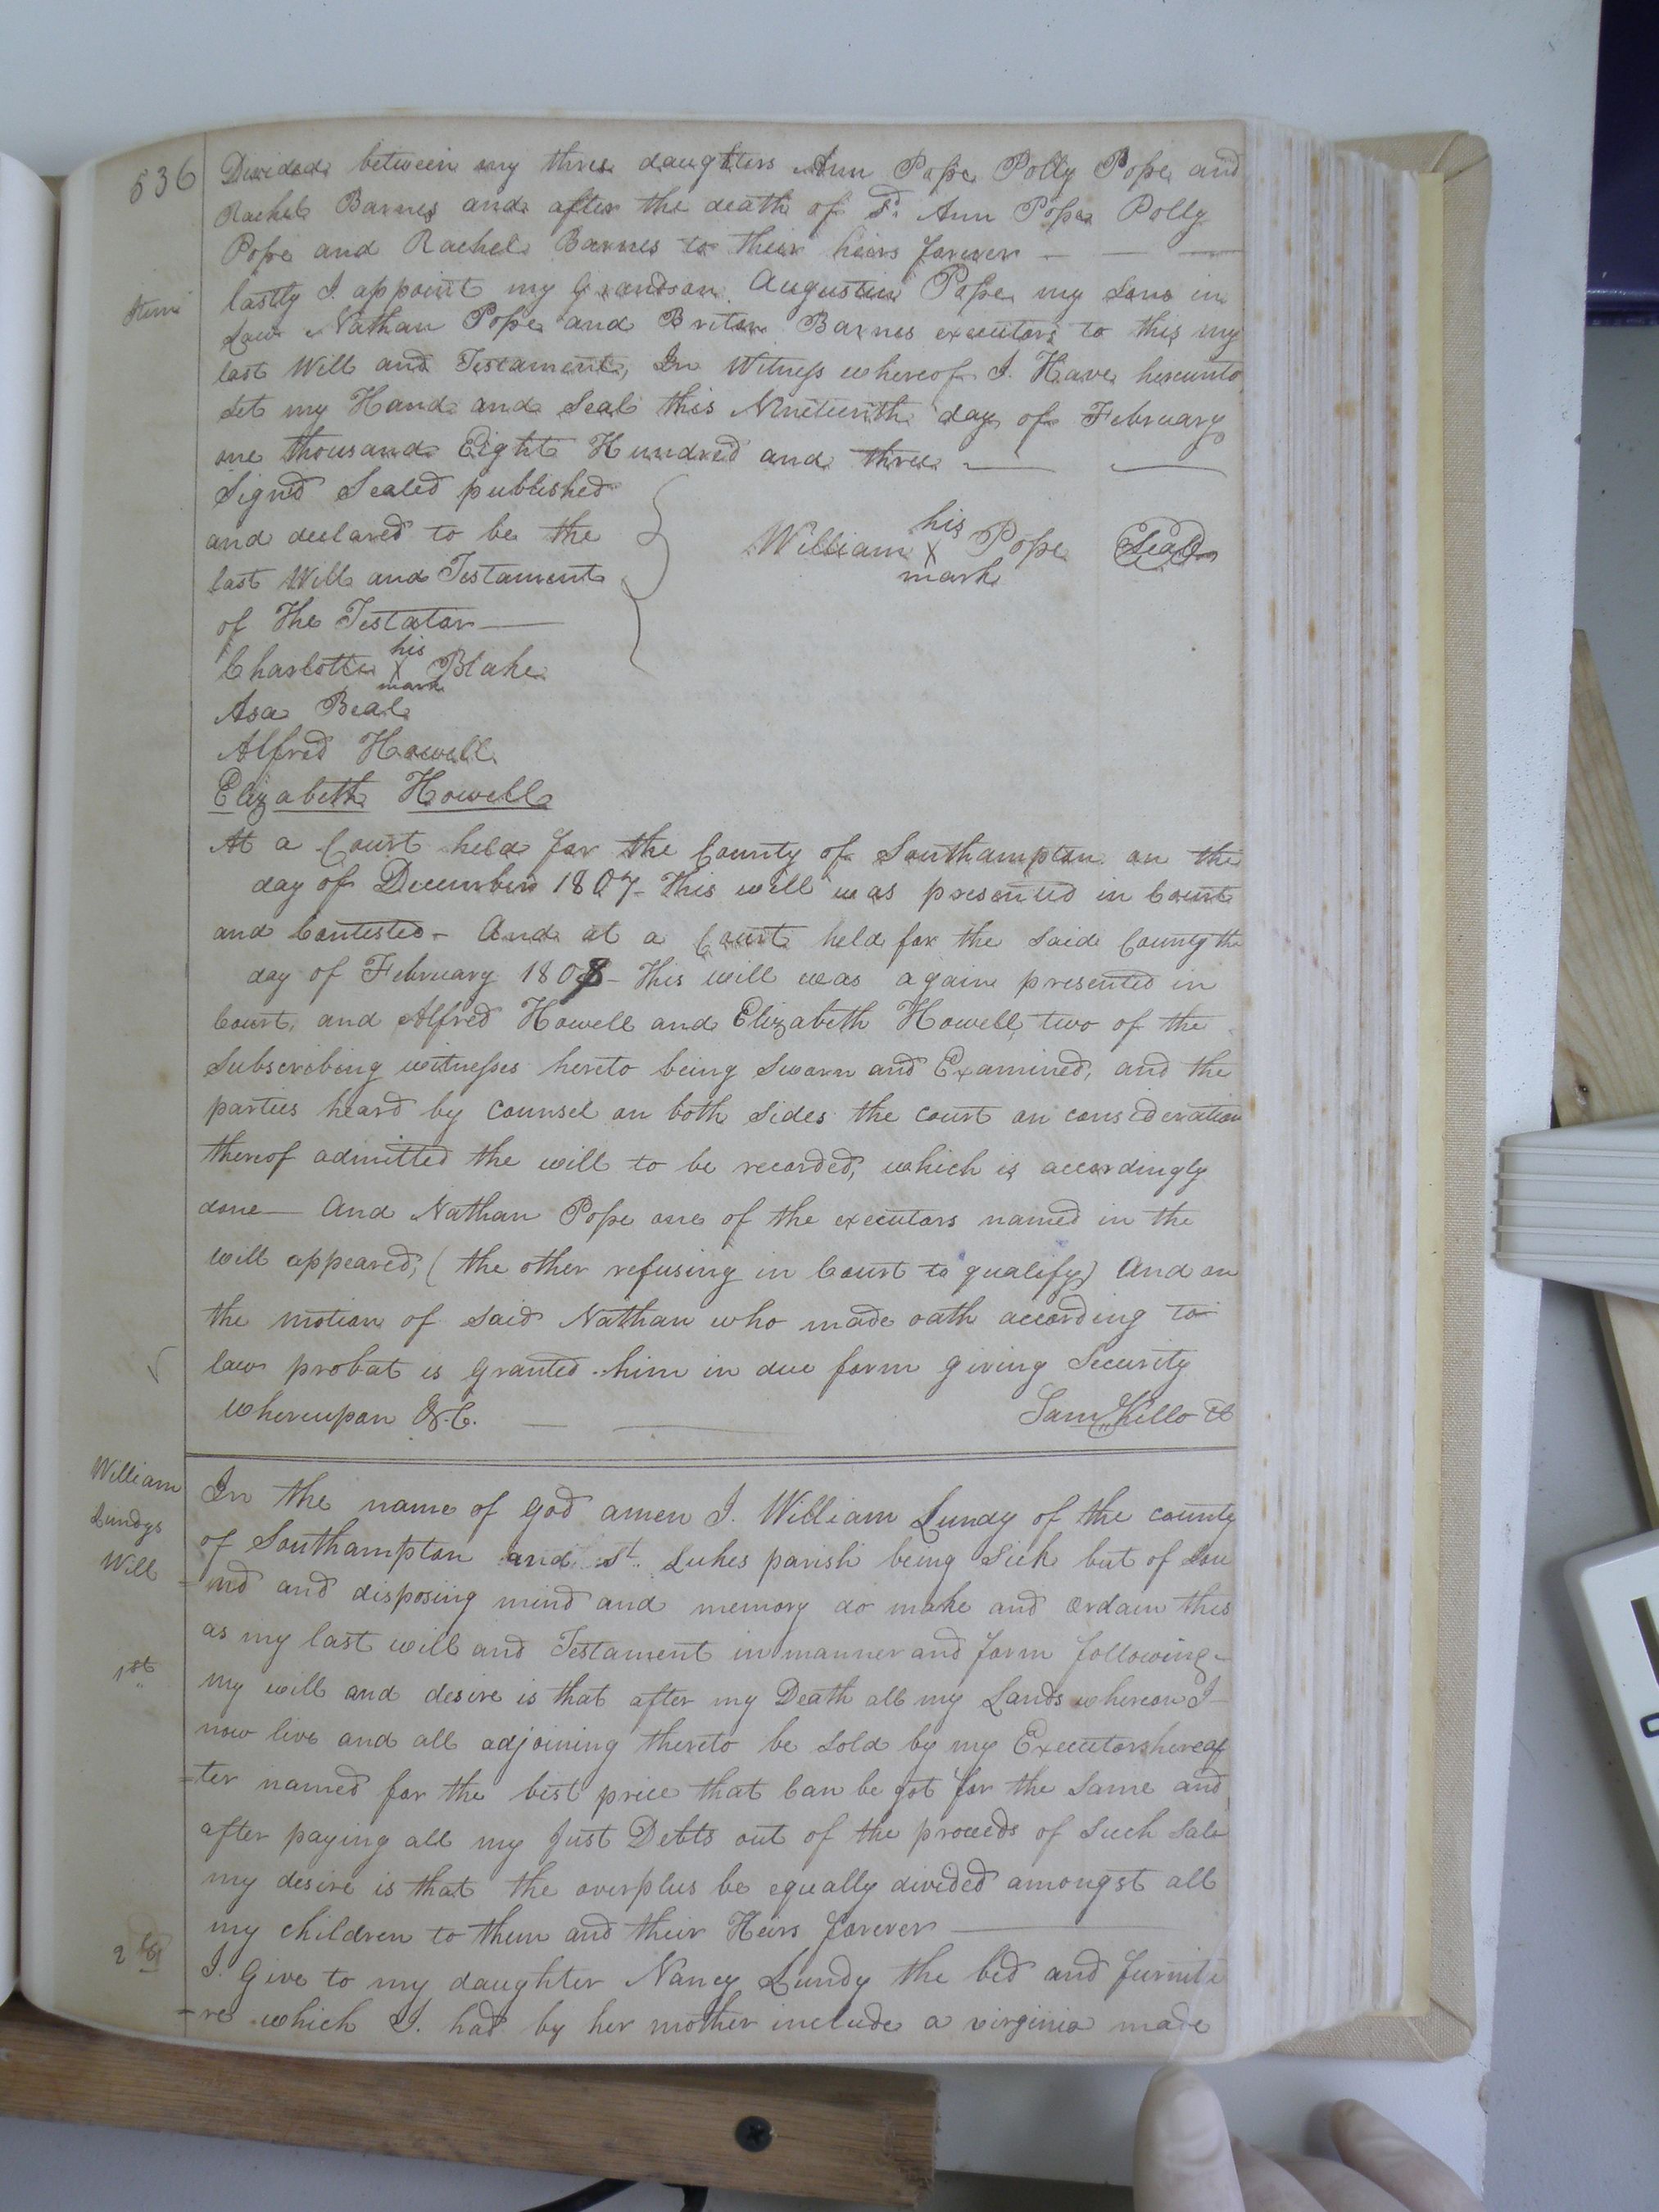 536
Divided between my three daughters Ann Pope Polly Pope and
Rachel Barnes and after the death of Sd. Ann Pope Polly
Pope and Rachel Barnes to their heirs forever
Item
lastly I appoint my Grandson Augustin Pope my Sons in
Law Nathan Pope and Briton Barnes executors to this my
last Will and Testament, In Witness whereof I Have hereunto
Set my Hand and Seal this Nineteenth day of February
one thousand Eight Hundred and three
Signd Sealed published
and declared to be the
last Will and Testament
of The Testator
William his X mark Pope Seal
Charlotte his X mark Blake
Asa Beal
Alfred Howell
Elizabeth Howell
At a Court held for the County of Southampton on the
day of December 1807 - This will was presented in Court
and Contested - And at a Court held for the said County the
day of February 1808 - This will was again presented in
Court, and Alfred Howell and Elizabeth Howell two of the
Subscribing witnesses hereto being Sworn and Examined, and the
parties heard by counsel on both sides the court on consideration
thereof admitted the will to be recorded, which is accordingly
done - And Nathan Pope one of the executors named in the
will appeared, (the other refusing in Court to qualify) And on
the motion of said Nathan who made oath according to
law probat is Granted him in due form giving Security
whereupon &.C.
Sam Kello CC
William
Lundys
Will
In the name of God amen I William Lundy of the county
of Southampton and St. Lukes parish being Sick but of Sou
=nd and disposing mind and memory do make and ordain this
as my last will and Testament in manner and form following -
1st
my will and desire is that after my Death all my Lands whereon I
now live and all adjoining thereto be sold by my Executors hereaf
=ter named for the best price that Can be got for the Same and
after paying all my Just Debts out of the proceeds of Such Sale
my desire is that the overplus be equally divided amongst all
my children to them and their Heirs forever
2
I Give to my daughter Nancy Lundy the bed and furnitu
=re which I had by her mother include a virginia made